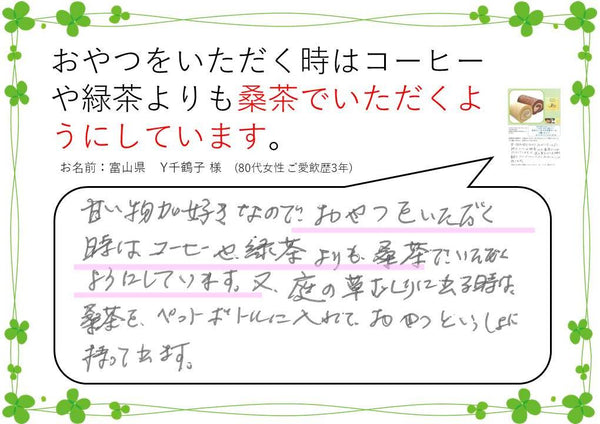 おやつをいただく時はコーヒー
や緑茶よりも桑茶でいただくよ
うにしています。
お名前：富山県　Y千鶴子 様　(80代女性ご愛飲歴3年)
甘い物が好きなので、おやつをいただく
時はコーヒーや緑茶よりも、桑茶でいただく
ようにしています。又、庭の草むしりに出る時は
桑茶を、ペットボトルに入れて、おやつといっしょに
持って出ます。